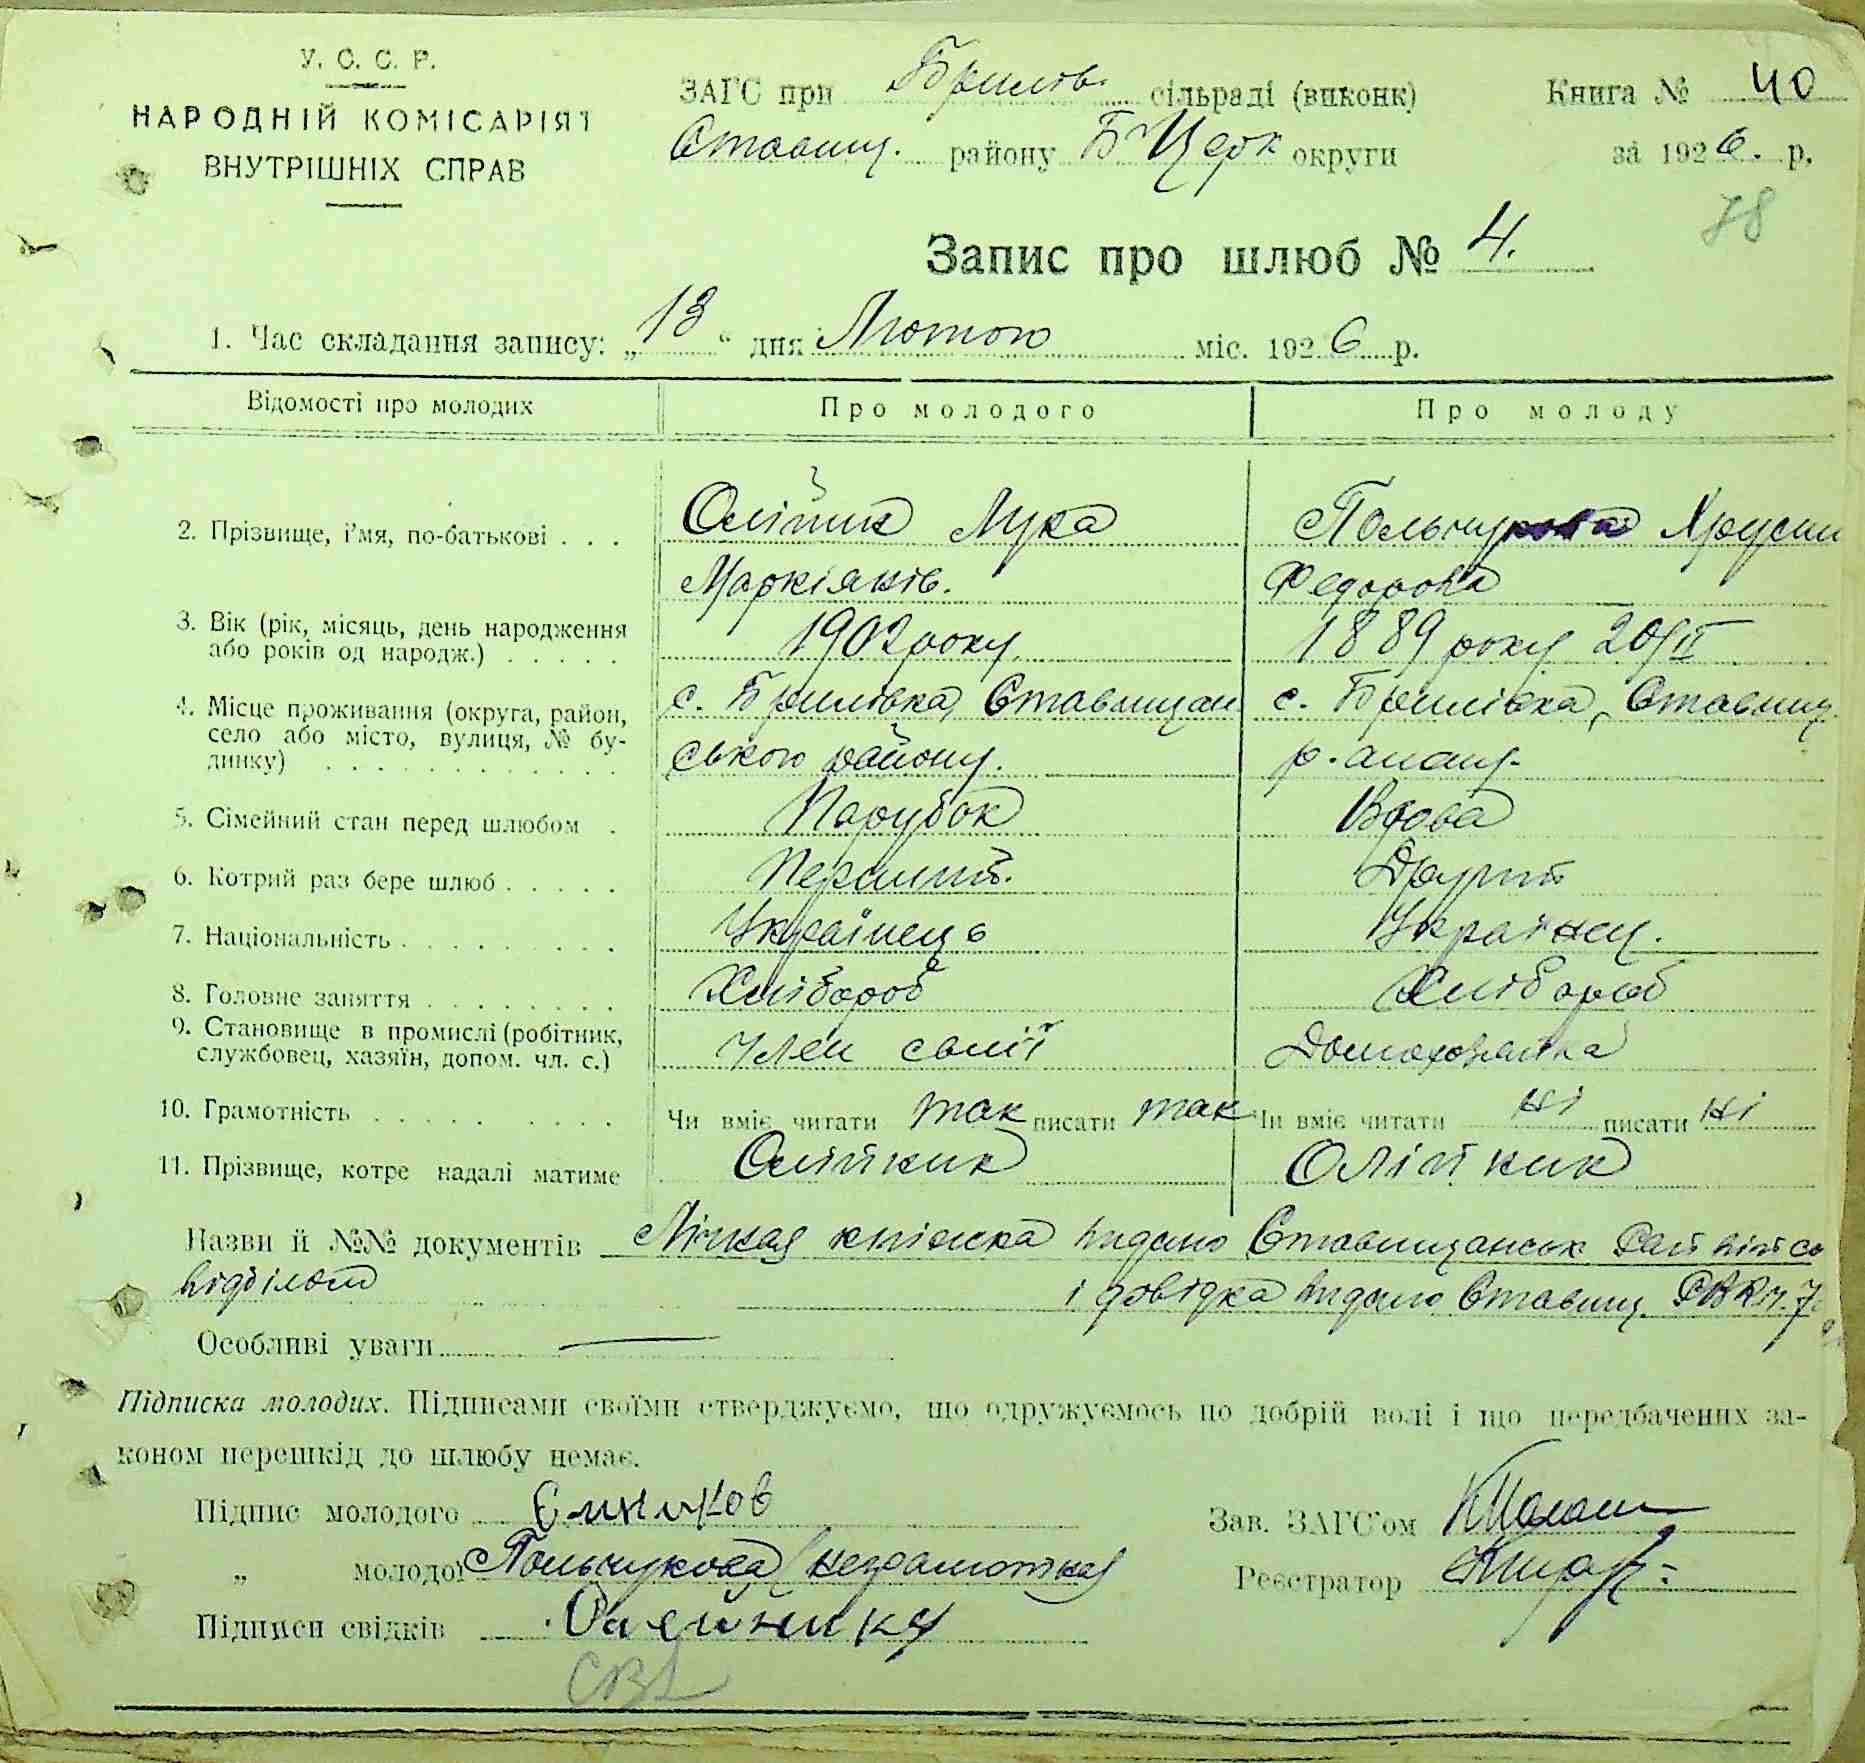 У. С. С. Р.
НАРОДНІЙ КОМІСАРІЯТ
ВНУТРІШНІХ СПРАВ
ЗАГС при Брилів. сільраді (виконк)
Ставищ. району Б Церк округи
Книга № 40
за 1926. р.
78
Запис про шлюб № 4.
1. Час складання запису: „13“ дня Лютого міс. 1926 р.
Відомості про молодих Про молодого Про молоду
2. Прізвище, і'мя, по-батькові . . . Олійник Лука Польчукова Хрусти
Маркіянів. Федорова
3. Вік (рік, місяць, день народження 1902 року 1889 року 20/II
або років од народж.) . . . . .
4. Місце проживання (округа, район, с. Брилівка, Ставищан с. Брилівка, Ставищ
село або місто, вулиця, № бу-
динку) ського району. р.
5. Сімейний стан перед шлюбом . Парубок Вдова
6. Котрий раз бере шлюб . . . . . Перший. Другий
7. Національність . . . . . . . . Українець Українец.
8. Головне заняття . . . . . . . Хлібороб Хлібороб
9. Становище в промислі (робітник,
службовец, хазяїн, допом. чл. с.) член сімії Домохозяйка
10. Грамотність . . . . . . . . . Чи вміє читати так писати так Чи вміє читати ні писати ні
11. Прізвище, котре надалі матиме Олійник Олійник
Назви й №№ документів книжка видано Ставищанськ Рай
відділом і довідка видано Ставищ. РВК
Особливі уваги
Підписка молодих. Підписами своїми стверджуємо, що одружуємось по добрій волі і що передбачених за-
коном перешкід до шлюбу немає.
Підпис молодого
„ молодої Польчукова (неграмотная)
Підписи свідків Олейника
Зав. ЗАГС'ом
Реєстратор